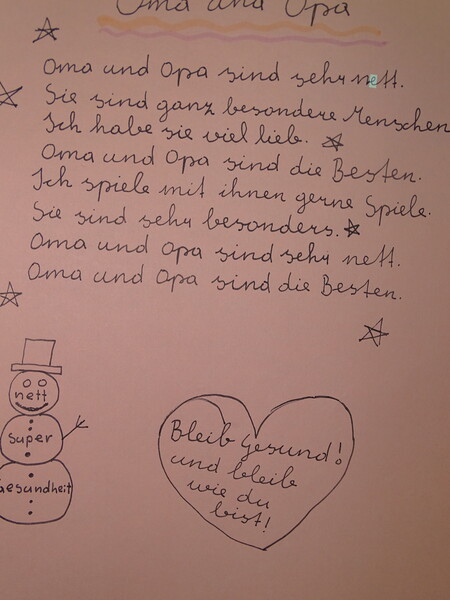 Oma und Opa
Oma und Opa sind sehr nett.
Sie sind ganz besondere Menschen
Ich habe sie viel lieb.
Oma und Opa sind die Besten.
Ich spiele mit ihnen gerne Spiele.
Sie sind sehr besonders.
Oma und Opa sind sehr nett.
Oma und Opa sind die Besten.
nett
super
Gesundheit
Bleib gesund!
und bleib
wie du
bist!